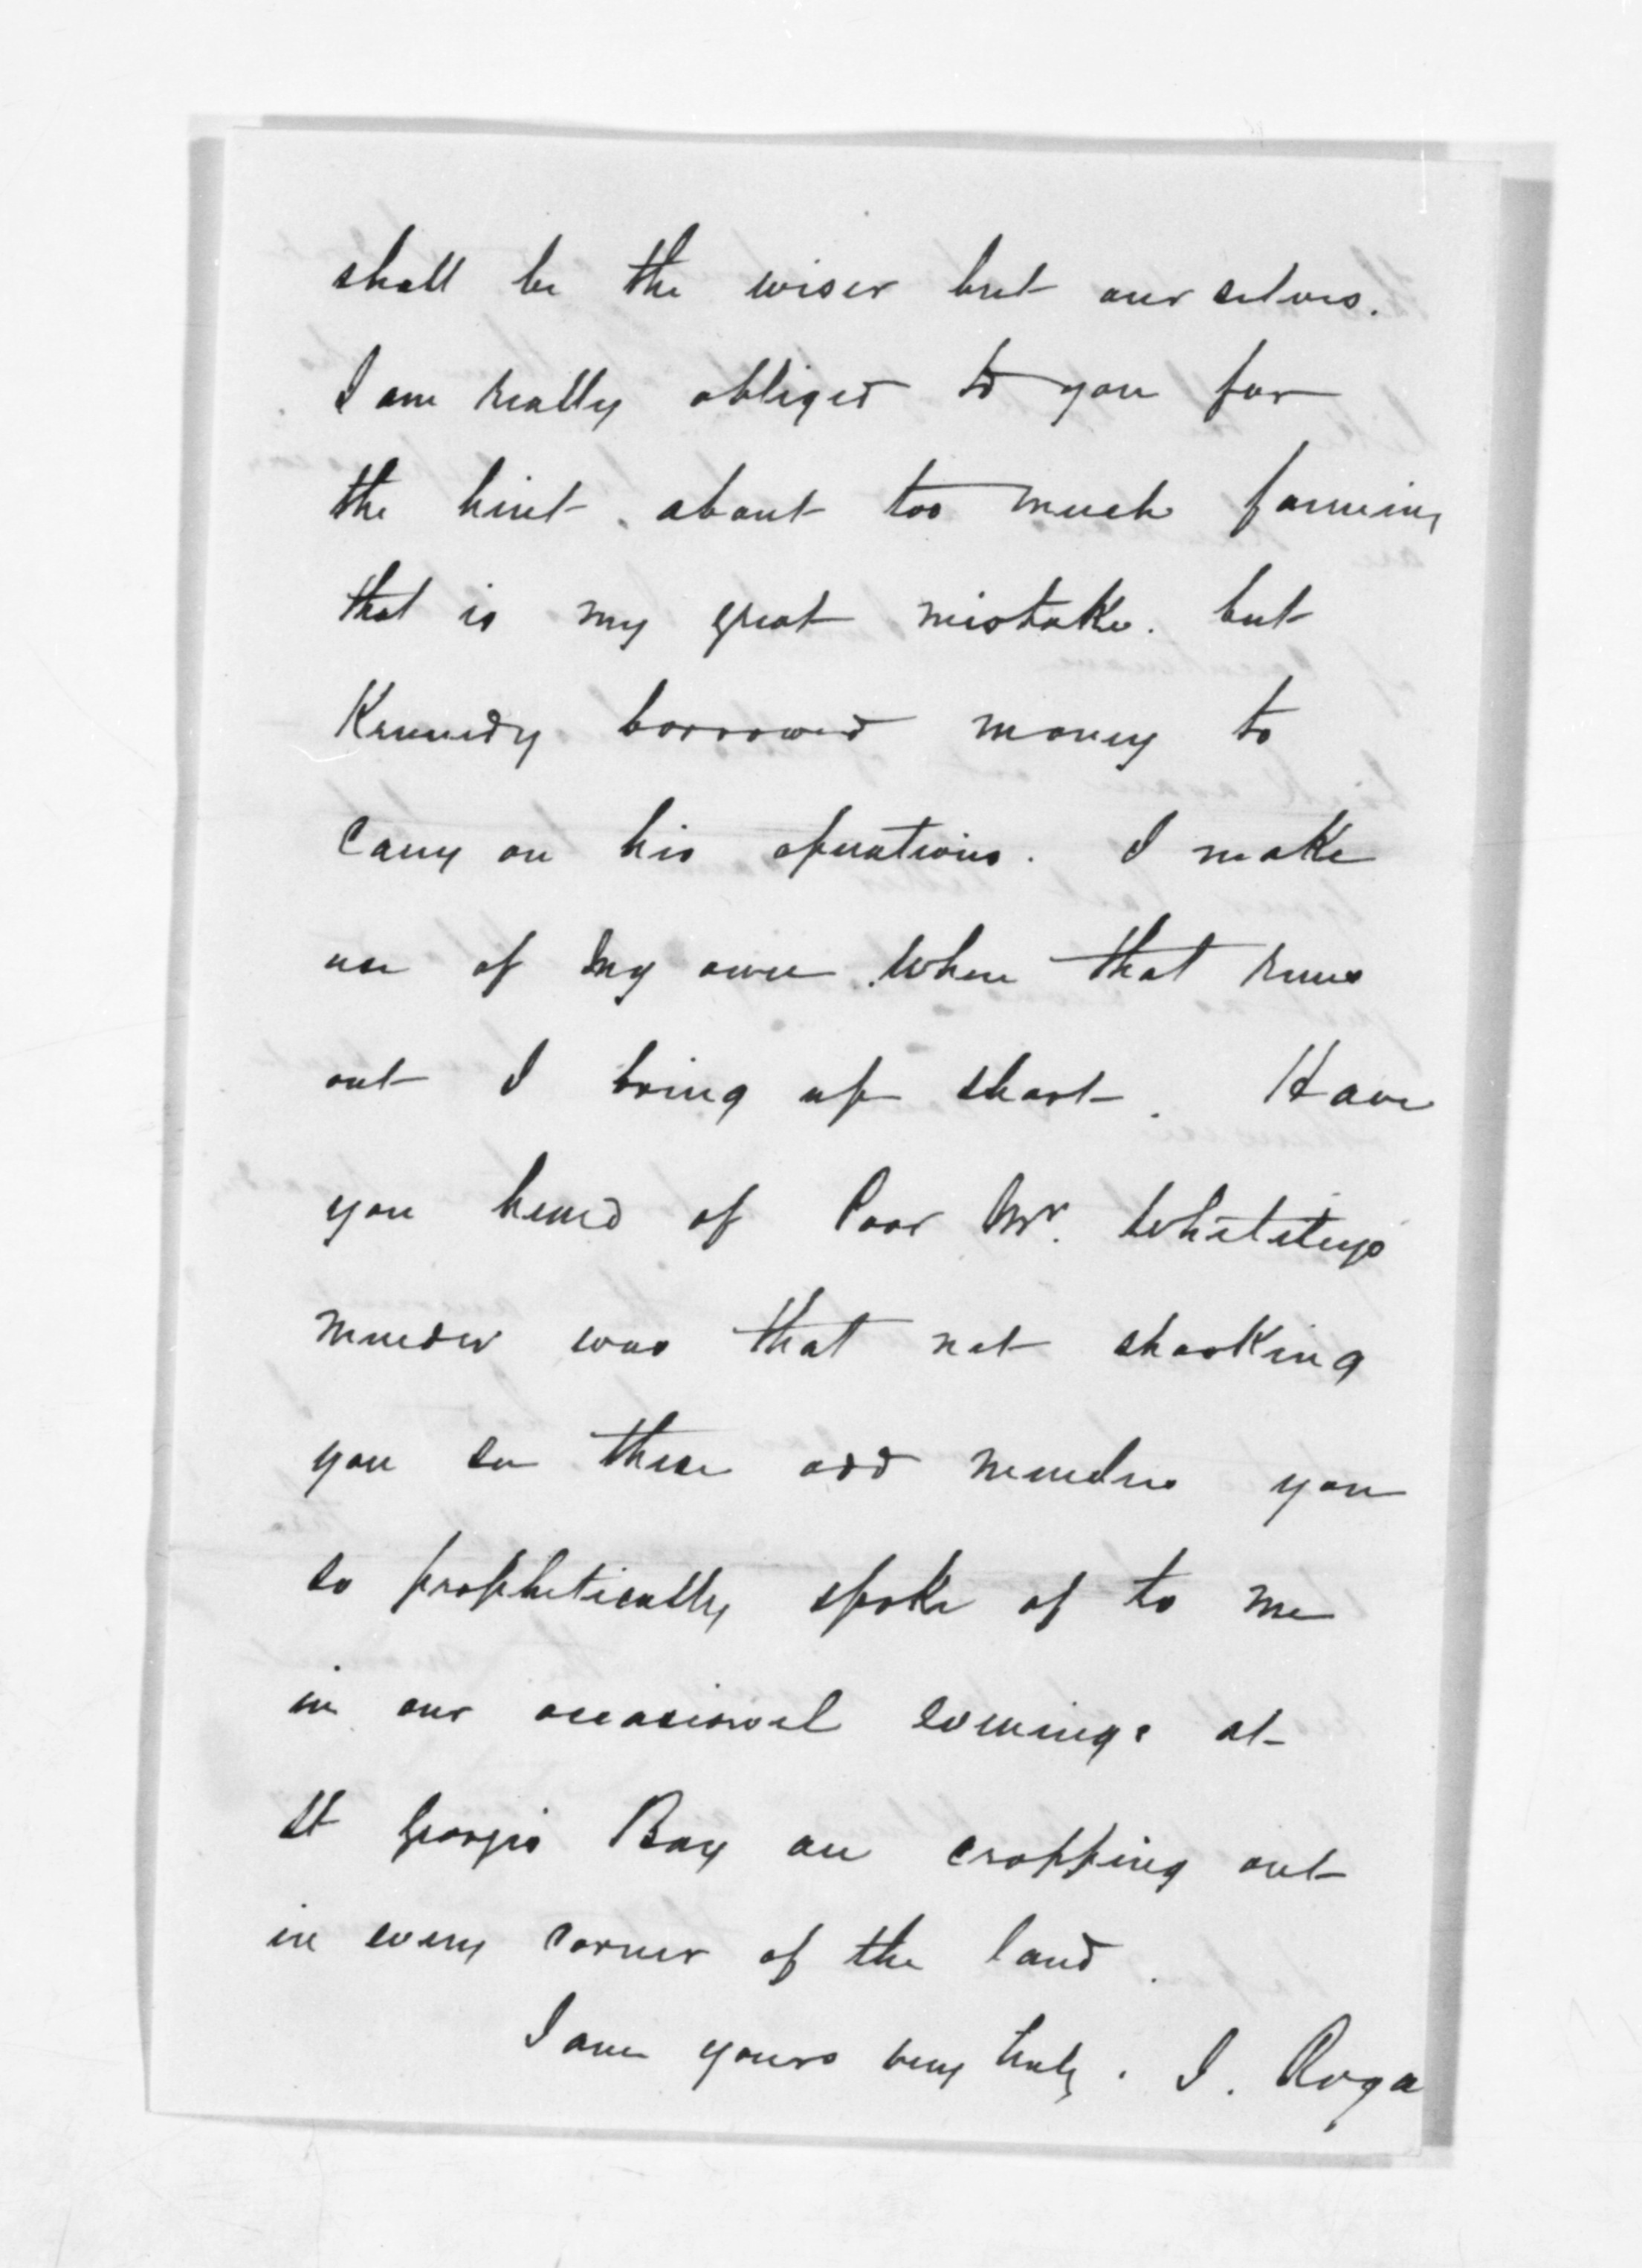 shall be the wiser but our selves.
I am really obliged to you for
the hint about too much farming
that is my great mistake. but
Kennedy borrowed money to
Carry on his operations. I make
use of my own. When that runs
out I bring up short. Have
you heard of Poor Mr. Whiteleys
murder was that not shocking
you see these odd murders you
so prophetically spoke of to me
in our occasional evenings at
St Georges Bay are cropping out
in every corner of the land.
I am yours very truly. I.